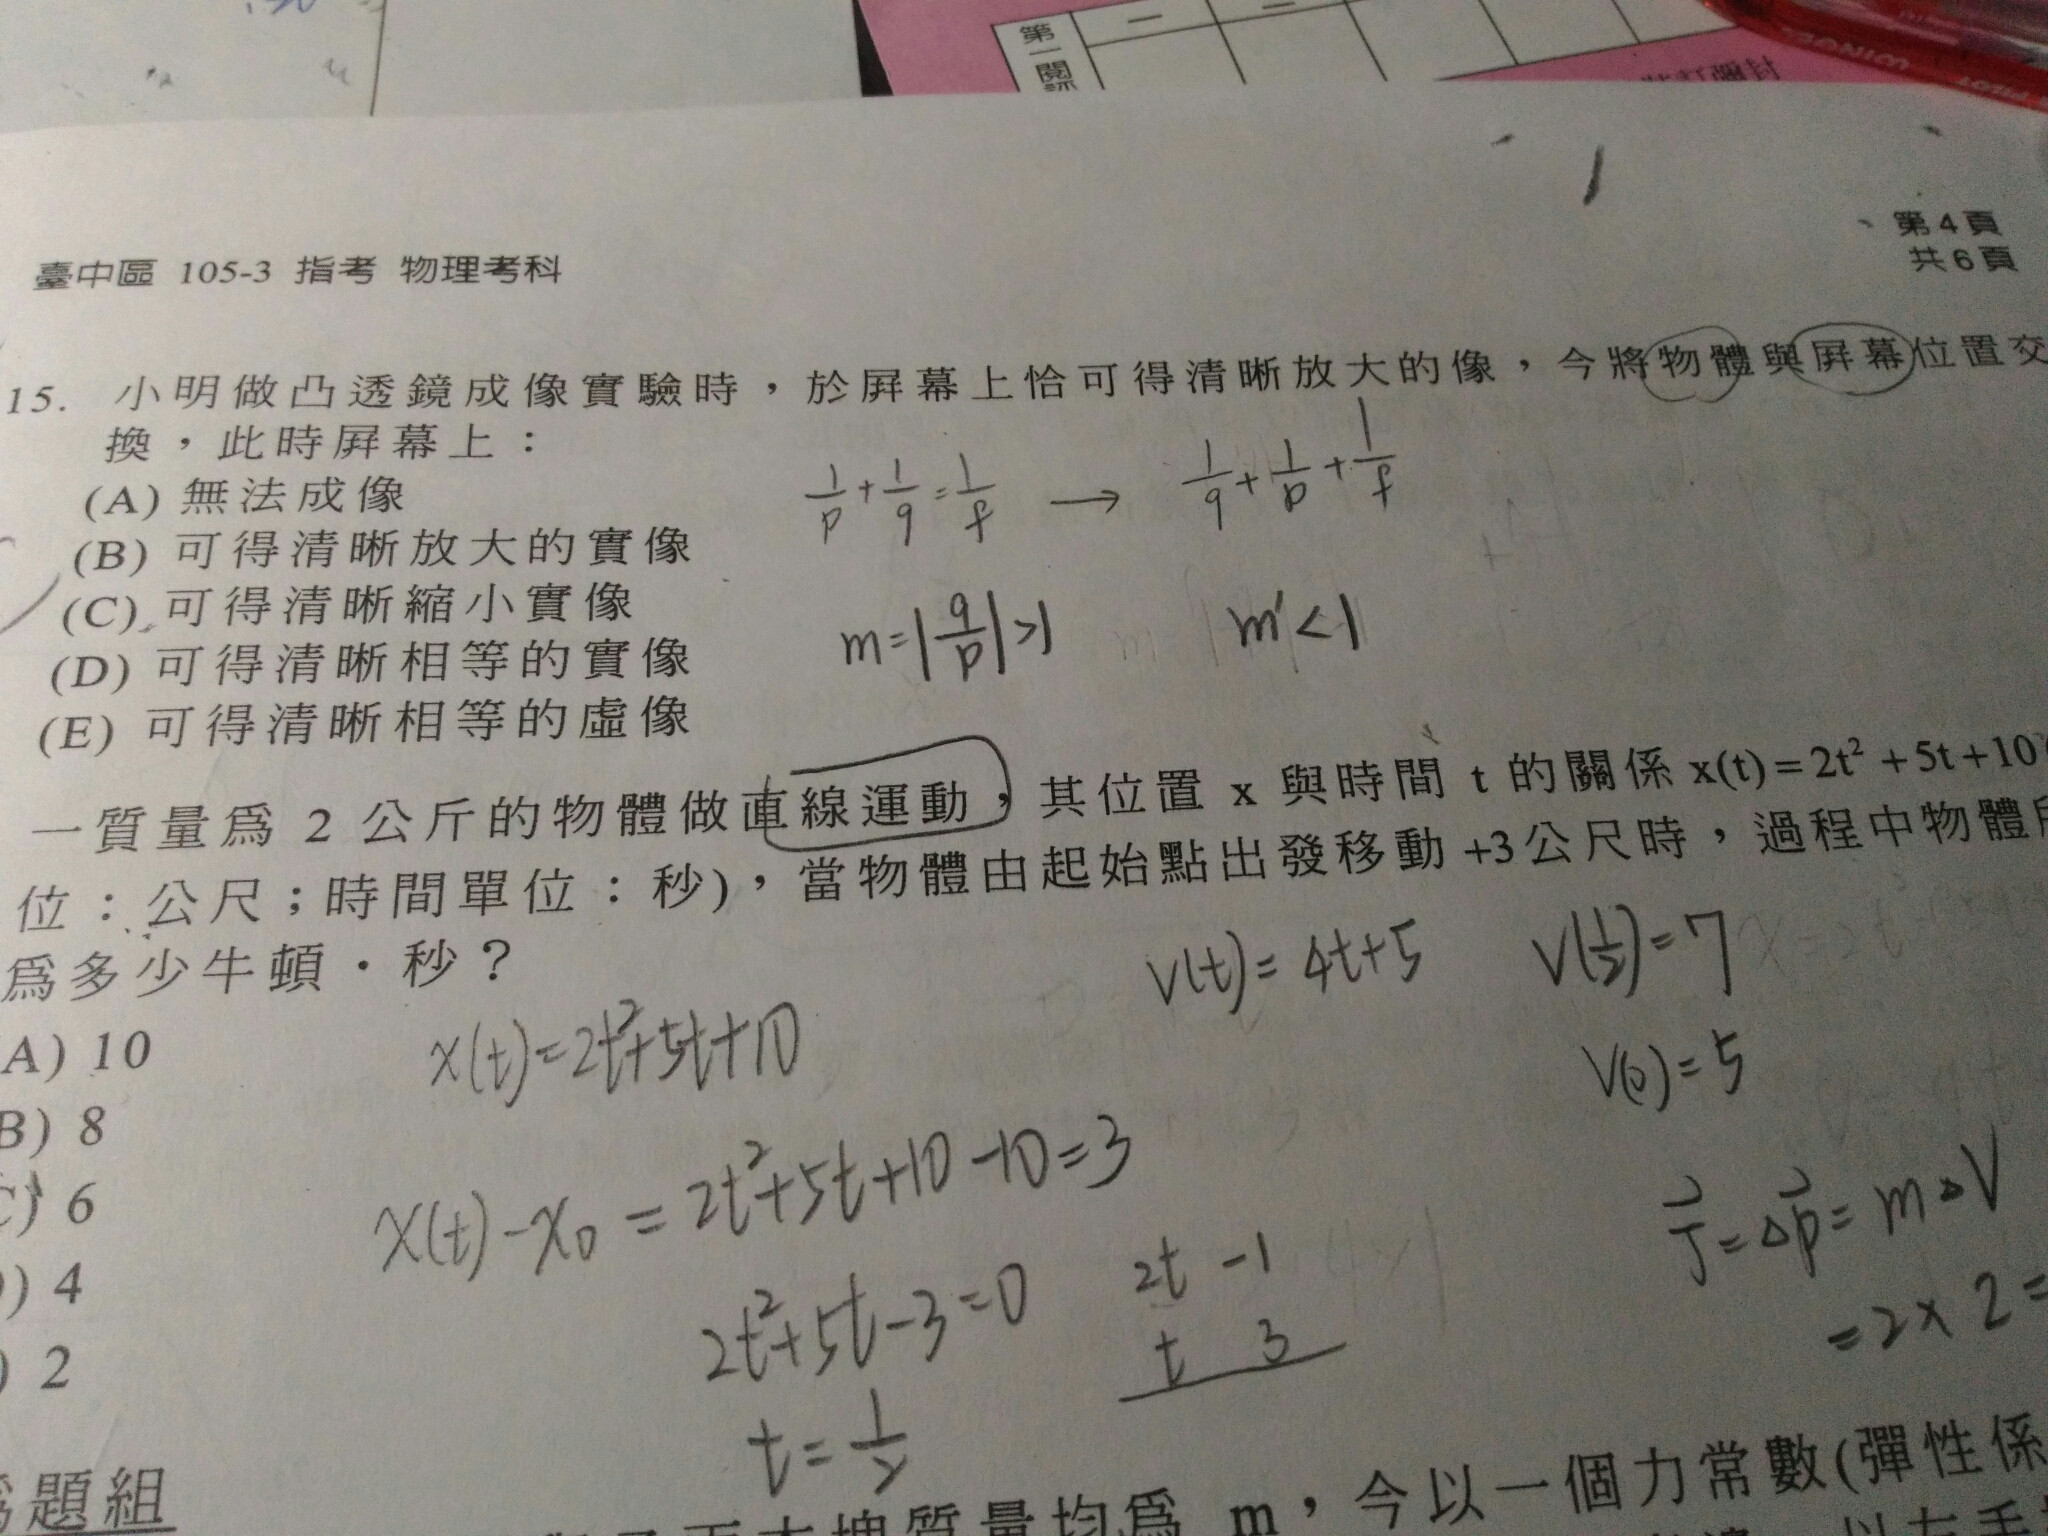 第一閱
一
二
臺中區 105-3 指考 物理考科
第4頁
共6頁
15. 小明做凸透鏡成像實驗時，於屏幕上恰可得清晰放大的像，今將物體與屏幕位置交
換，此時屏幕上：
(A) 無法成像
(B) 可得清晰放大的實像
(C) 可得清晰縮小實像
(D) 可得清晰相等的實像
(E) 可得清晰相等的虛像
1/p + 1/q = 1/f → 1/q + 1/p + 1/f
m=|q/p|>1 m'<1
一質量為 2 公斤的物體做直線運動，其位置 x 與時間 t 的關係 x(t)=2t²+5t+10
位：公尺；時間單位：秒)，當物體由起始點出發移動+3公尺時，過程中物體
為多少牛頓．秒？
A) 10
B) 8
C) 6
) 4
) 2
x(t)=2t²+5t+10
x(t)-x₀=2t²+5t+10-10=3
2t²+5t-3=0
2t -1
t 3
t=1/2
V(t)=4t+5 V(1/2)=7
V(0)=5
J=Δp=mΔV
=2×2=
題組
質量均為 m，今以一個力常數(彈性係